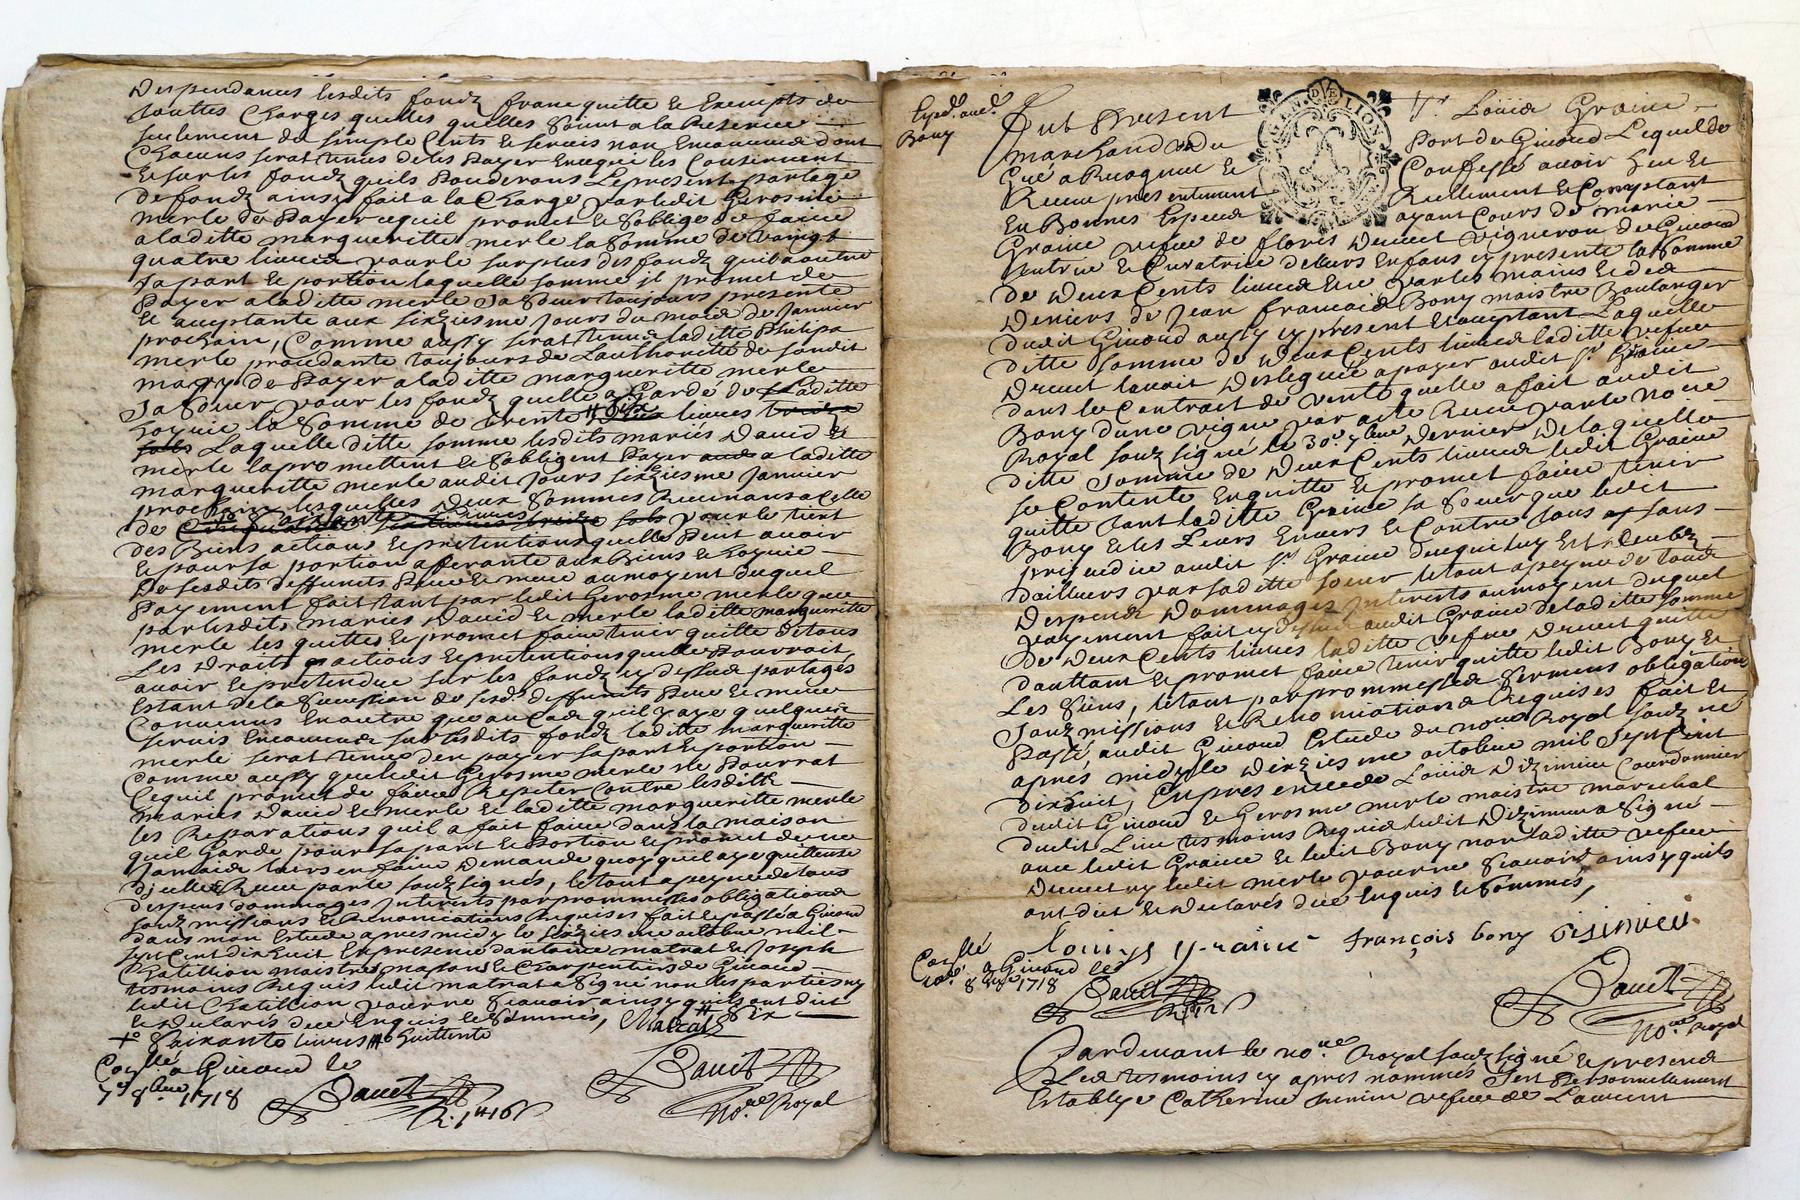 Despendances lesdits fondz franc quitte et Exempts de
touttes Charges quelles quelles soient a la Reserve
seulement de simple Cents et servis non Encourus dont
Chacuns serat tenus de les payer
Et sur les fondz quils Le present partage
de fondz ainsy fait a la Charge par ledit Gerosme
merle de payer cequil promet et soblige de faire
a laditte margueritte merle la somme de vaingt
quatre livres pour le surplus des fondz quil a outre
sa part et portion laquelle somme il promet de
payer a laditte merle sa soeur toujours presente
et acceptante aux sixziesme jours du mois de Janvier
prochain, Comme aussy serat tenue laditte Philipa
merle procedante toujours de Lauthoritté de sondit
mary de payer a laditte margueritte merle
sa soeur pour les fondz quelle a Gardé de laditte
hoyrie la somme de trente six livres
Laquelle ditte somme lesdits mariés David et
merle la promettent et sobligent payer a laditte
margueritte merle audit jours sixziesme Janvier
prochain lesquelles deux sommes Revenans a Celle
de pour le tiert
des Biens actions et pretentions quelle peut avoir
et pour sa portion afferante aux Biens et hoyrie
De sesdits deffuncts pere et mere au moyent duquel
payement fait tant par ledit Gerosme merle que
par lesdits mariés David et merle laditte margueritte
merle les quitte et promet faire tenir quitte de tous
Les Droits actions et pretentions quelle pourroit
avoir et pretendre sur les fondz cy dessus partagés
Estant de la succession de sesds deffuncts pere et mere
Convenus En outre que au Cas quil y aye quelques
servis Encourus sur lesdits fondz laditte margueritte
merle serat tenue den payer sa part et portion
Comme aussy que ledit Gerosme merle ne pourrat
Cequil promet de faire Repeter Contre lesdits
mariés David et merle et laditte margueritte merle
les Reparations quil a fait faire dans la maison
quil Garde pour sa part et portion et promet de ne
Jamais leurs en faire Demande quoy quil aye quittence
dicelles Reçue par le souz signés, le tout a peyne de tous
despens dommages Interests par promesses obligations
souz missions et Renonciations Requises fait et passé a Givord
dans mon Estude apres midy le sixziesme octobre mil
sept Cent dix huit En presence dantoine matrat et Joseph
Chatillion maistres massons et Charpentiers de Givord
tesmoins Requis ledit matrat a signé non les parties ny
ledit Chatillion pour ne scavoir ainsy quils ont dict
et declarés de ce Enquis et sommés, Matrat
soixante livres
Conllé a Givord le
7e 8bre 1718
Dauet
Dauet
No.re Royal
Bony
fut present Sr Louis Graine
marchand Du Port de Givord Lequel de
Gré a Recognue et Confessé avoir heu et
Reçeue presentement Reellement et Comptant
En Bonnes Espece ayant Cours de marie
GEN DE LION
Graine vefve de floris Drevet vigneron de Givord
tutrice et Curatrice de leurs Enfans cy presente la somme
de Deux Cents livres par les mains et des
Deniers de Jean francois Bony maistre Boulanger
dudit Givord aussy cy present et acceptant Laquelle
ditte somme de Deux Cents livres laditte vefve
Drevet lavoit Desleguée a payer audit sr Graine
dans le Contrait de vente quelle a fait audit
Bony dune vigne par acte Reçeu par le no.re
Royal souz signé le 30e 7bre Dernier De laquelle
ditte somme de Deux Cents livres ledit Graine
se Contente En quitte et promet faire tenir
quitte tant laditte Graine sa soeur que ledit
Bony et les Leurs Envers et Contre tous sans
prejudice audit sr Graine de ce qui luy Est deub
dailleurs par laditte soeur le tout a peyne de tous
Despens Dommages Interests au moyent duquel
payement fait cy dessus audit Graine de laditte somme
de Deux Cents livres laditte vefve Drevet quitte
dauttant et promet faire tenir quitte ledit Bony et
Les siens, le tout par prommesses sermens obligations
Souz missions et Renonciations Requises fait et
Passé audit Givord Estude du no.re Royal souz né
apres midy le Dixziesme octobre mil sept Cent
dix huit, En presence de Louis Dizimieu Courdonnier
dudit Givord et Gerosme merle maistre marechal
dudit Lieu tesmoins Requis ledit Dizimieu a signé
avec ledit Graine et ledit Bony non laditte vefve
Drevet ny ledit merle pour ne scavoir ainsy quils
ont dict et Declarés de ce Enquis et sommés,
louiys graine françois bony Disimieu
Conllé
a Givord le
8bre 1718
Dauet
Dauet
No.re Royal
Pardevant le no.re Royal souz signé et presens
Les tesmoins cy apres nommés sest personnellement
Establye Catherine vefve de Laurent